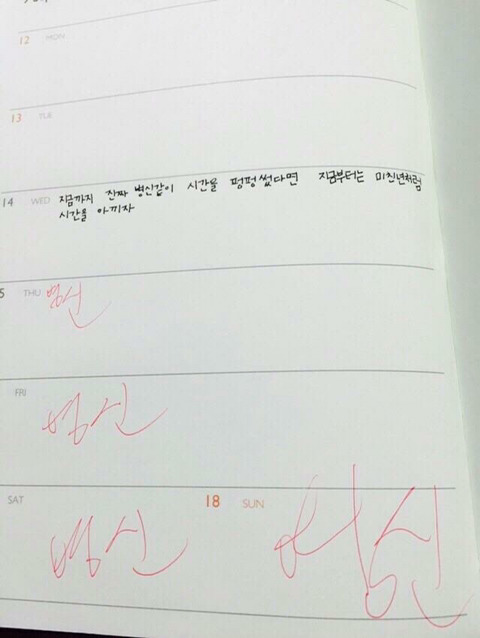 12 MON
13 TUE
14 WED 지금까지 진짜 병신같이 시간을 펑펑썼다면 지금부터는 미친년처럼
시간을 아끼자
5 THU 병신
FRI
병신
SAT 18 SUN
병신 병신